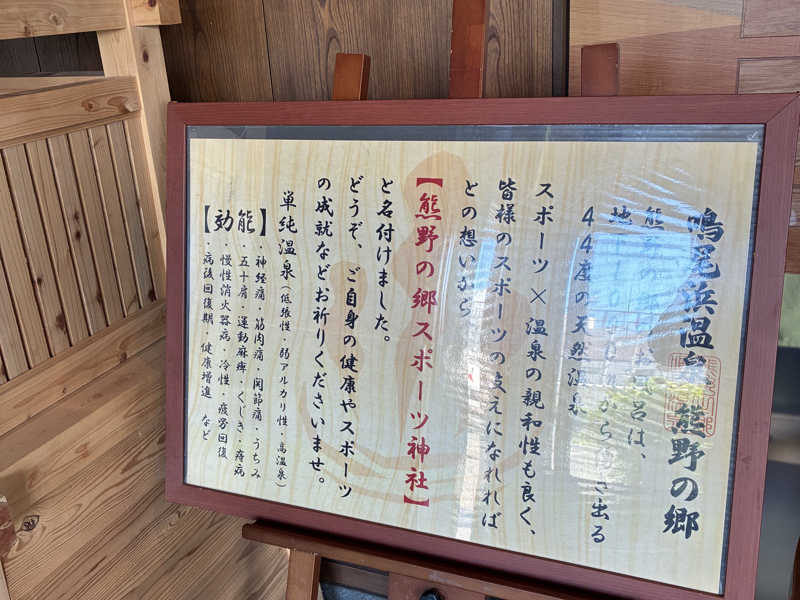 鳴尾浜温泉 熊野の郷
熊野の お風呂は、
地下 から湧き出る
44度の天然温泉
スポーツ×温泉の親和性も良く、
皆様のスポーツの支えになれれば
との想いから
【熊野の郷スポーツ神社】
と名付けました。
どうぞ、ご自身の健康やスポーツ
の成就などお祈りくださいませ。
単純温泉（低張性・弱アルカリ性・高温泉）
【効能】
・神経痛・筋肉痛・関節痛・うちみ
・五十肩・運動麻痺・くじき・痔病
・慢性消火器病・冷性・疲労回復
・病後回復期・健康増進 など